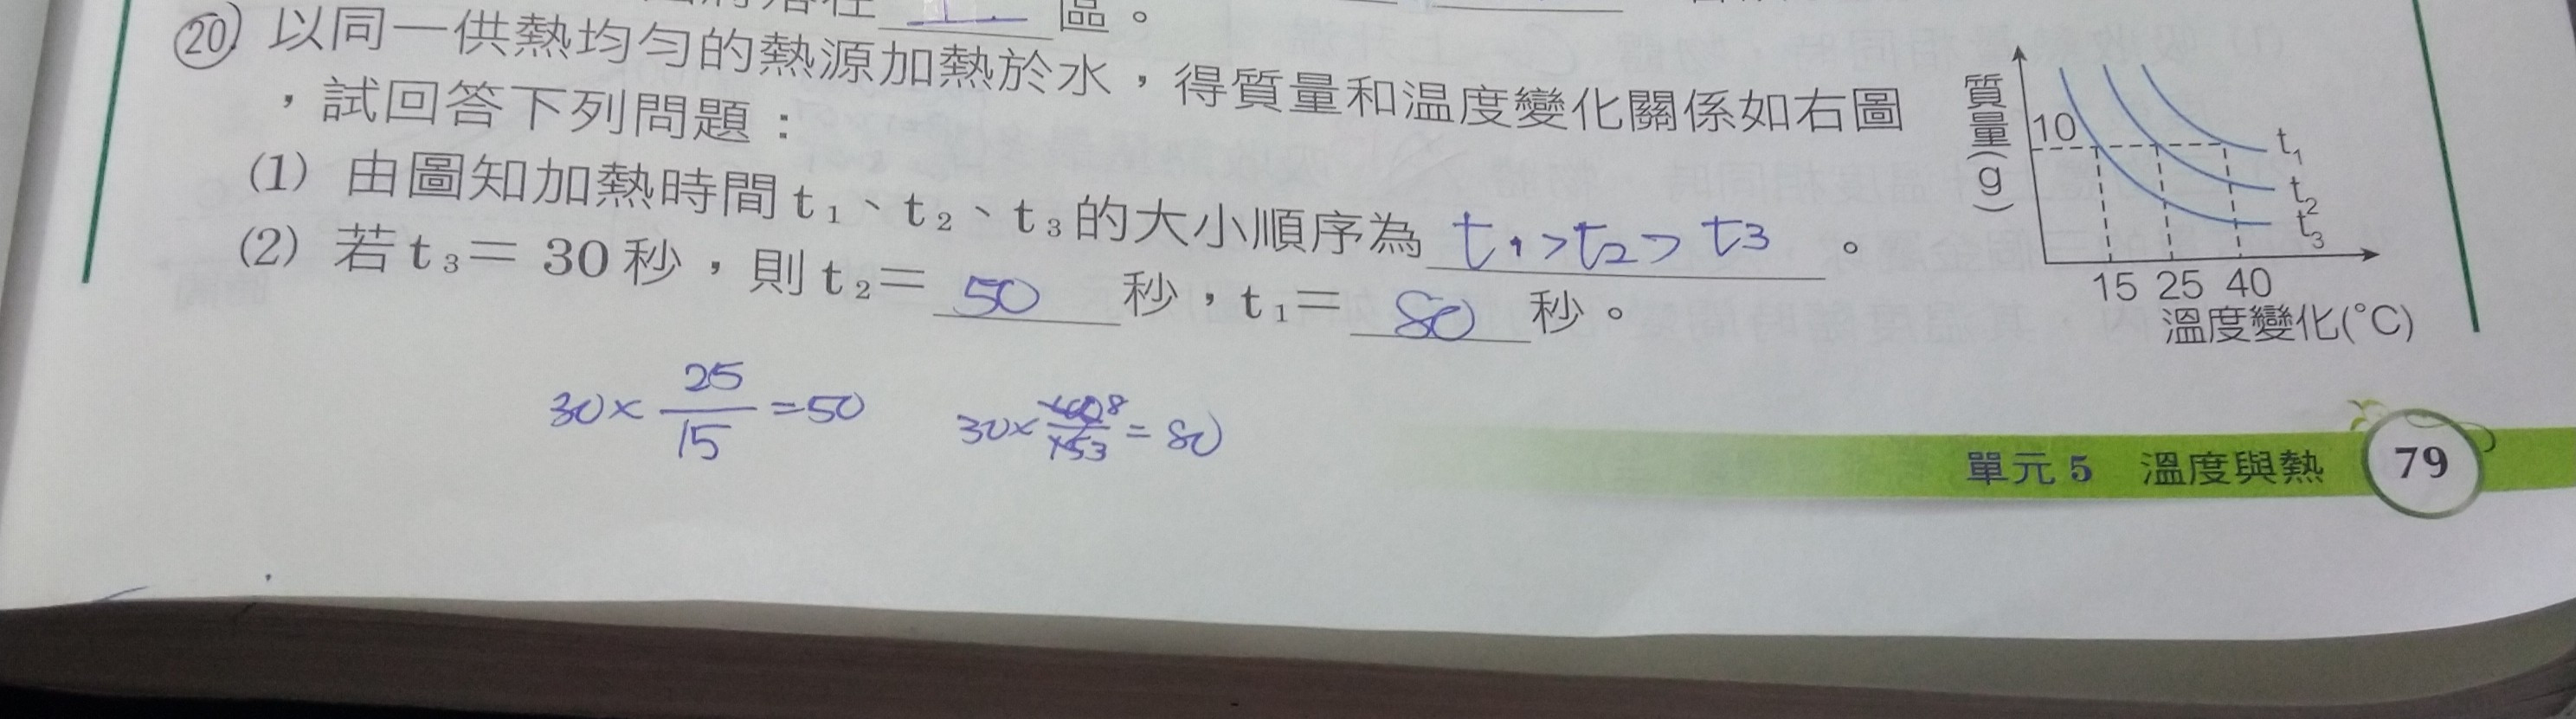 區。
20. 以同一供熱均勻的熱源加熱於水，得質量和溫度變化關係如右圖
，試回答下列問題：
(1) 由圖知加熱時間t₁、t₂、t₃的大小順序為 t₁>t₂>t₃ 。
(2) 若t₃＝ 30秒，則t₂＝ 50 秒，t₁＝ 80 秒。
質量(g)
10
t₁
t₂
t₃
15 25 40
溫度變化(℃)
30×25/15=50
30× 8/3 = 80
單元 5 溫度與熱 79